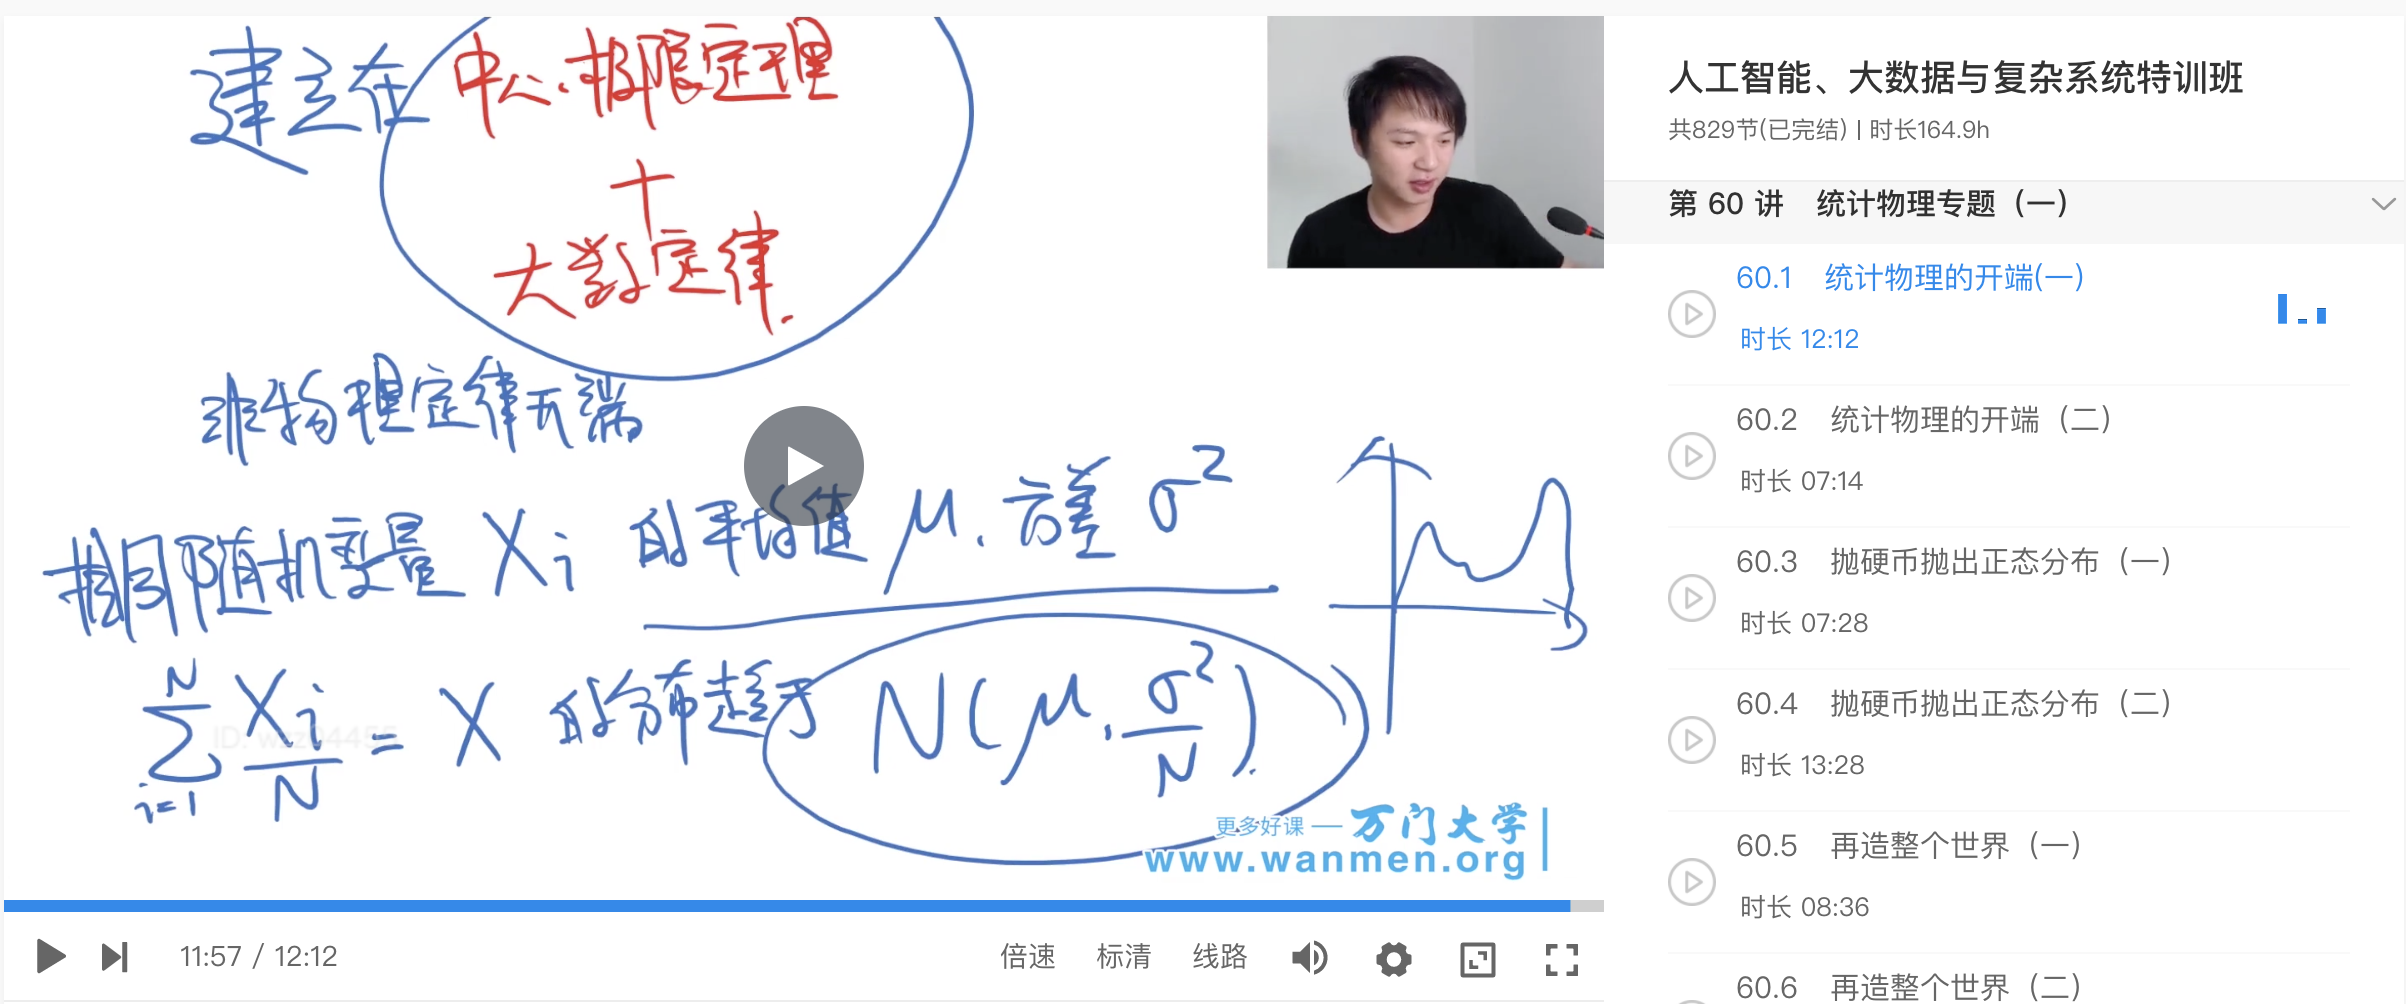 建立在 中心极限定理
+
大数定律.
非物理定律无端
相同随机变量 Xi 的平均值 μ. 方差 σ²
N
∑ Xi/N = X 的分布趋于 N(μ, σ²/N).
i=1
更多好课 — 万门大学
www.wanmen.org
11:57 / 12:12
倍速 标清 线路
人工智能、大数据与复杂系统特训班
共829节(已完结) | 时长164.9h
第 60 讲 统计物理专题（一）
60.1 统计物理的开端(一)
时长 12:12
60.2 统计物理的开端（二）
时长 07:14
60.3 抛硬币抛出正态分布（一）
时长 07:28
60.4 抛硬币抛出正态分布（二）
时长 13:28
60.5 再造整个世界（一）
时长 08:36
60.6 再造整个世界（二）